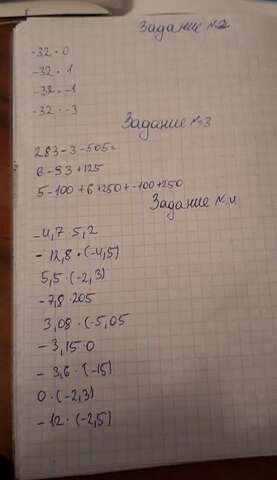 Задание №2
-32 · 0
-32 · 1
-32 · -1
-32 · -3
Задание №3
283-3-505=
6-93+125
5-100+6+250+-100+250
Задание №4
-4,7 5,2
-12,8 · (-4,5)
5,5 · (-2,3)
-7,8 · 205
3,08 · (-5,05
-3,15 · 0
-3,6 · (-15)
0 · (-2,3)
-12 · (-2,5)